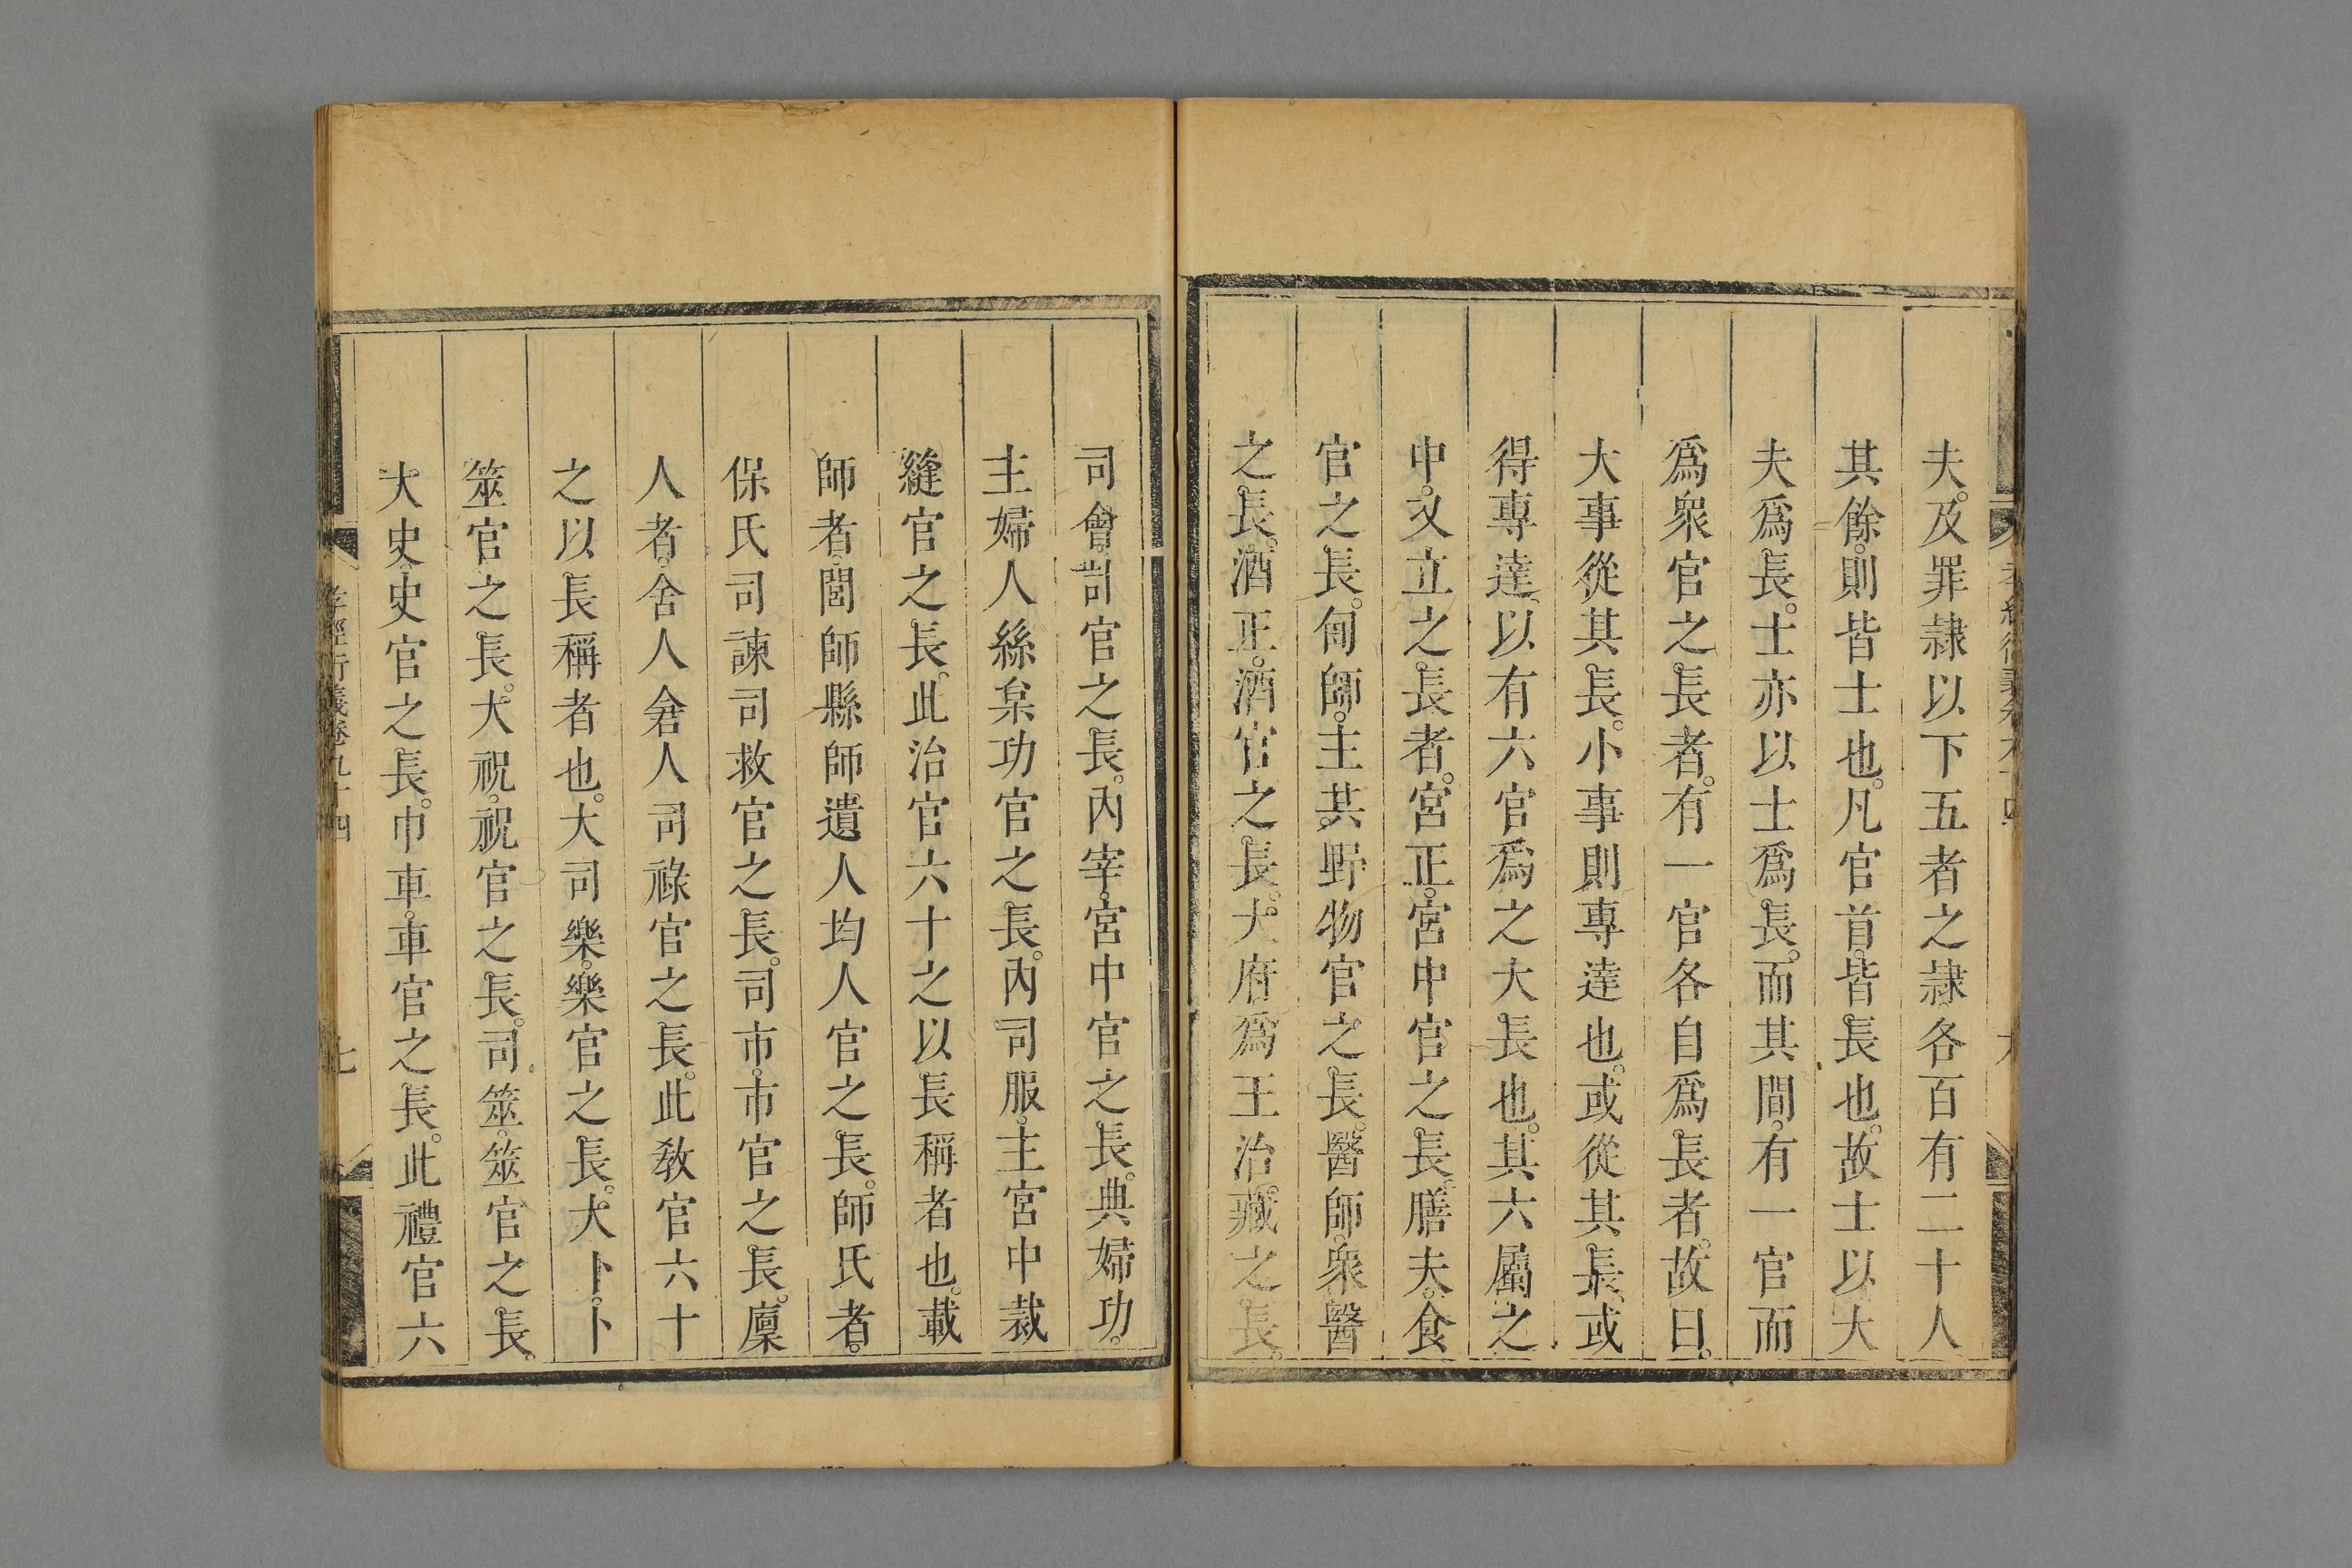 夫。及罪隸以下五者之隸。各百有二十人
其餘。則皆士也。凡官首。皆長也。故士以大
夫爲長。士亦以士爲長。而其間。有一官而
爲衆官之長者。有一官各自爲長者。故曰。
大事從其長。小事則專達也。或從其長。或
得專達。以有六官爲之大長也。其六屬之
中。又立之長者。宮正。宮中官之長。膳夫。食
官之長。甸師。主共野物官之長。醫師。衆醫
之長。酒正。酒官之長。大府爲王治藏之長。
司會。計官之長。內宰。宮中官之長。典婦功。
主婦人絲枲功官之長。內司服。主宮中裁
縫官之長。此治官六十之以長稱者也。載
師者。閭師縣師遺人均人官之長。師氏者。
保氏司諫司救官之長。司市。市官之長。廩
人者。舍人倉人司祿官之長。此敎官六十
之以長稱者也。大司樂。樂官之長。大卜。卜
筮官之長。大祝。祝官之長。司筮。筮官之長。
大史。史官之長。巾車。車官之長。此禮官六
孝經衍義卷九十四
七